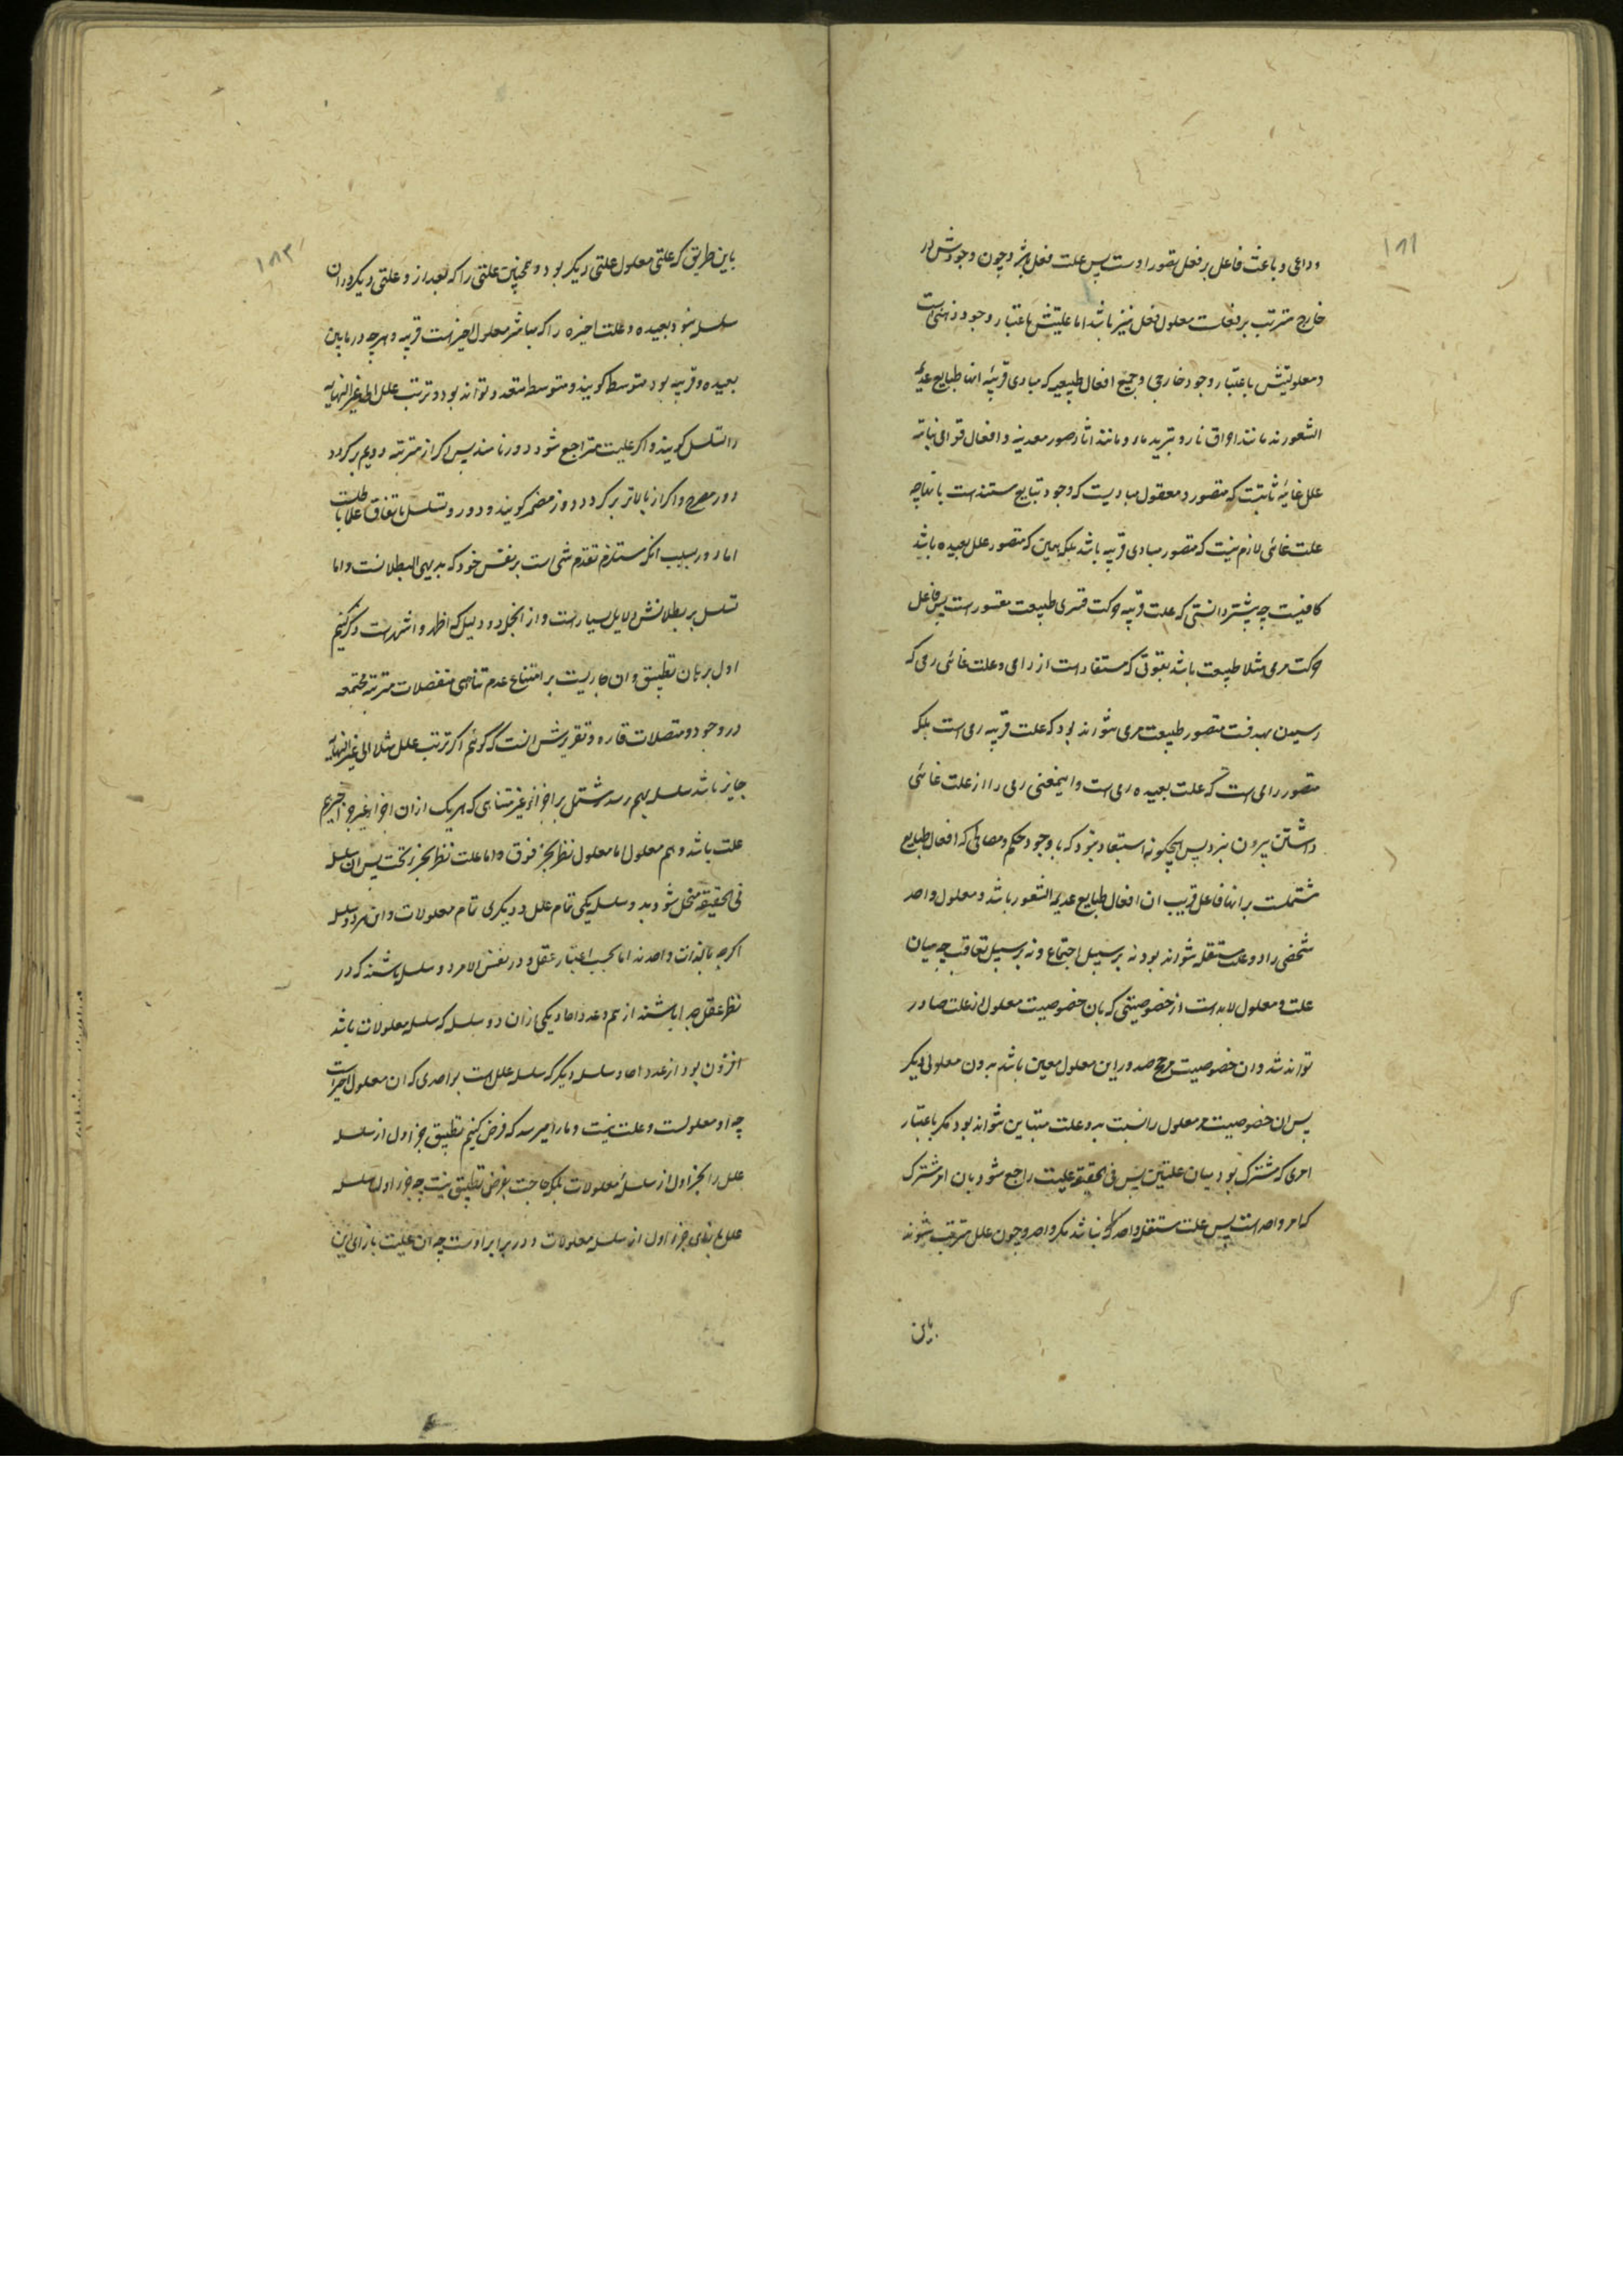 وداعی و باعث فاعل بر فعل تصور اوست پس علت فعل باشد و چون وجودش در
خارج مترتب بر فعلست معلول فعل نیز باشد اما علیتش باعتبار وجود ذهنی است
و معلولیتش باعتبار وجود خارجی و جمیع افعال طبیعیه که مبادی قریبه انها طبایع عدیمه
الشعورند مانند احراق نار و تبرید ماء و مانند اثار صور معدنیه و افعال قوای نباتیه
علل غائیه ثابتست که متصور و معقول مبادیست که وجود تبایع مستندست بانها چه
علت غائی لازم نیست که متصور مبادی قریبه باشد بلکه همین که متصور علل بعیده باشد
کافیست چه پیشتر دانستی که علت قریبه حرکت قسری طبیعت مقسور است پس فاعل
حرکت مرمی مثلا طبیعت باشد بقوتی که مستفاد است از رامی و علت غائی رمی که
رسیدن بهدفست متصور طبیعت مرمی نتواند بود که علت قریبه رمی است بلکه
متصور رامی است که علت بعیده رمی است و اینمعنی رمی را از علت غائی
داشتن بیرون نبرد پس هیچگونه استبعاد نبود که با وجود حکم و مصالح که افعال طبایع
مشتملست بر انها فاعل قریب ان افعال طبایع عدیم الشعور باشد و معلول واحد
شخصی را دو علت مستقله نتواند بود نه بر سبیل اجتماع و نه بر سبیل تعاقب چه میان
علت و معلول لابد است از خصوصیتی که بان خصوصیت معلول از علت صادر
تواند شد و ان خصوصیت مرجح صدور این معلول معین باشد بدون معلولی دیگر
پس ان خصوصیت مر معلول را نسبت بدو علت متباین نتواند بود مگر باعتبار
امری که مشترک بود میان علتین پس فی الحقیقه علیت راجع شود بان امر مشترک
که امر واحد است پس علت مستقله واحد نباشد مگر واحد و چون علل مترتب شوند
باین
باین طریق که علتی معلول علتی دیگر بود و همچنین علتی را که بعد از و علتی دیگر در ان
سلسله نبود بعیده و علت اخیره را که مباشر معلول اخیر است قریبه و هرچه در مابین
بعیده و قریبه بود متوسط گویند و متوسط متعدد تواند بود و ترتب علل الی غیر النهایه
را تسلسل گویند و اگر علیت متراجع شود دور نامند پس اگر از مرتبه دویم برگردد
دور مصرح و اگر از بالاتر برگردد دور مضمر گویند و دور و تسلسل باتفاق عقلا باطلست
اما دور بسبب انکه مستلزم تقدم شی است بر نفس خود که بدیهی البطلانست و اما
تسلسل بر بطلانش دلایل بسیار است و از انجمله دو دلیل که اظهر و اشهر است ذکر کنیم
اول برهان تطبیق و ان جاریست بر امتناع عدم تناهی منفصلات مترتبه مجتمعه
در وجود و متصلات قاره و تقریرش انست که گوئیم اگر ترتب علل مثلا الی غیر النهایه
جایز باشد سلسله بهم رسد مشتمل بر اجزاء غیر متناهی که هر یک از ان اجزا غیر جزء اخیر هم
علت باشد و هم معلول اما معلول نظر بجزء فوق و اما علت نظر بجزء تحت پس ان سلسله
فی الحقیقه منحل شود بدو سلسله یکی تمام علل و دیگری تمام معلولات و این هر دو سلسله
اگرچه بالذات واحدند اما بحسب اعتبار عقل و در نفس الامر دو سلسله باشند که در
نظر عقل جدا باشند از هم و عدد احاد یکی از ان دو سلسله که سلسله معلولات باشد
افزون بود از عدد احاد سلسله دیگر که سلسله علل است بواحدی که ان معلول اخیر است
چه او معلولست و علت نیست و ما را میرسد که فرض کنیم تطبیق جزء اول از سلسله
علل را بجزء اول از سلسله معلولات بلکه حاجت بفرض تطبیق نیست چه جزء اول سلسله
علل بازای جزء اول از سلسله معلولات و در برابر اوست چه ان علیت بازای این